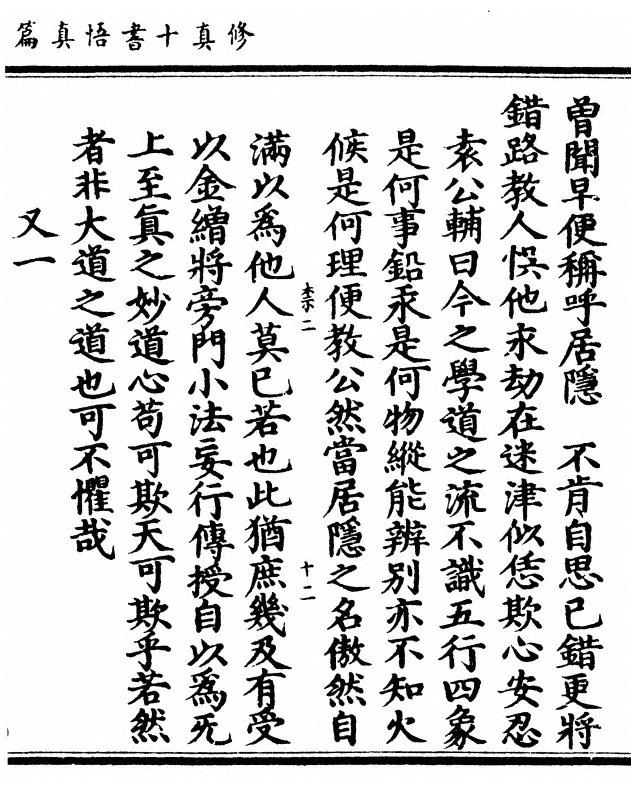 修真十書悟真篇
曾聞早便稱呼居隱　不肯自思已錯更將
錯路教人悮他求劫在迷津似恁欺心安忍
袁公輔曰今之學道之流不識五行四象
是何事鉛汞是何物縱能辨別亦不知火
候是何理便教公然當居隱之名傲然自
柰二　十二
滿以爲他人莫已若也此猶庶幾及有受
以金繒將旁門小法妄行傳授自以爲无
上至真之妙道心苟可欺天可欺乎若然
者非大道之道也可不懼哉
又一